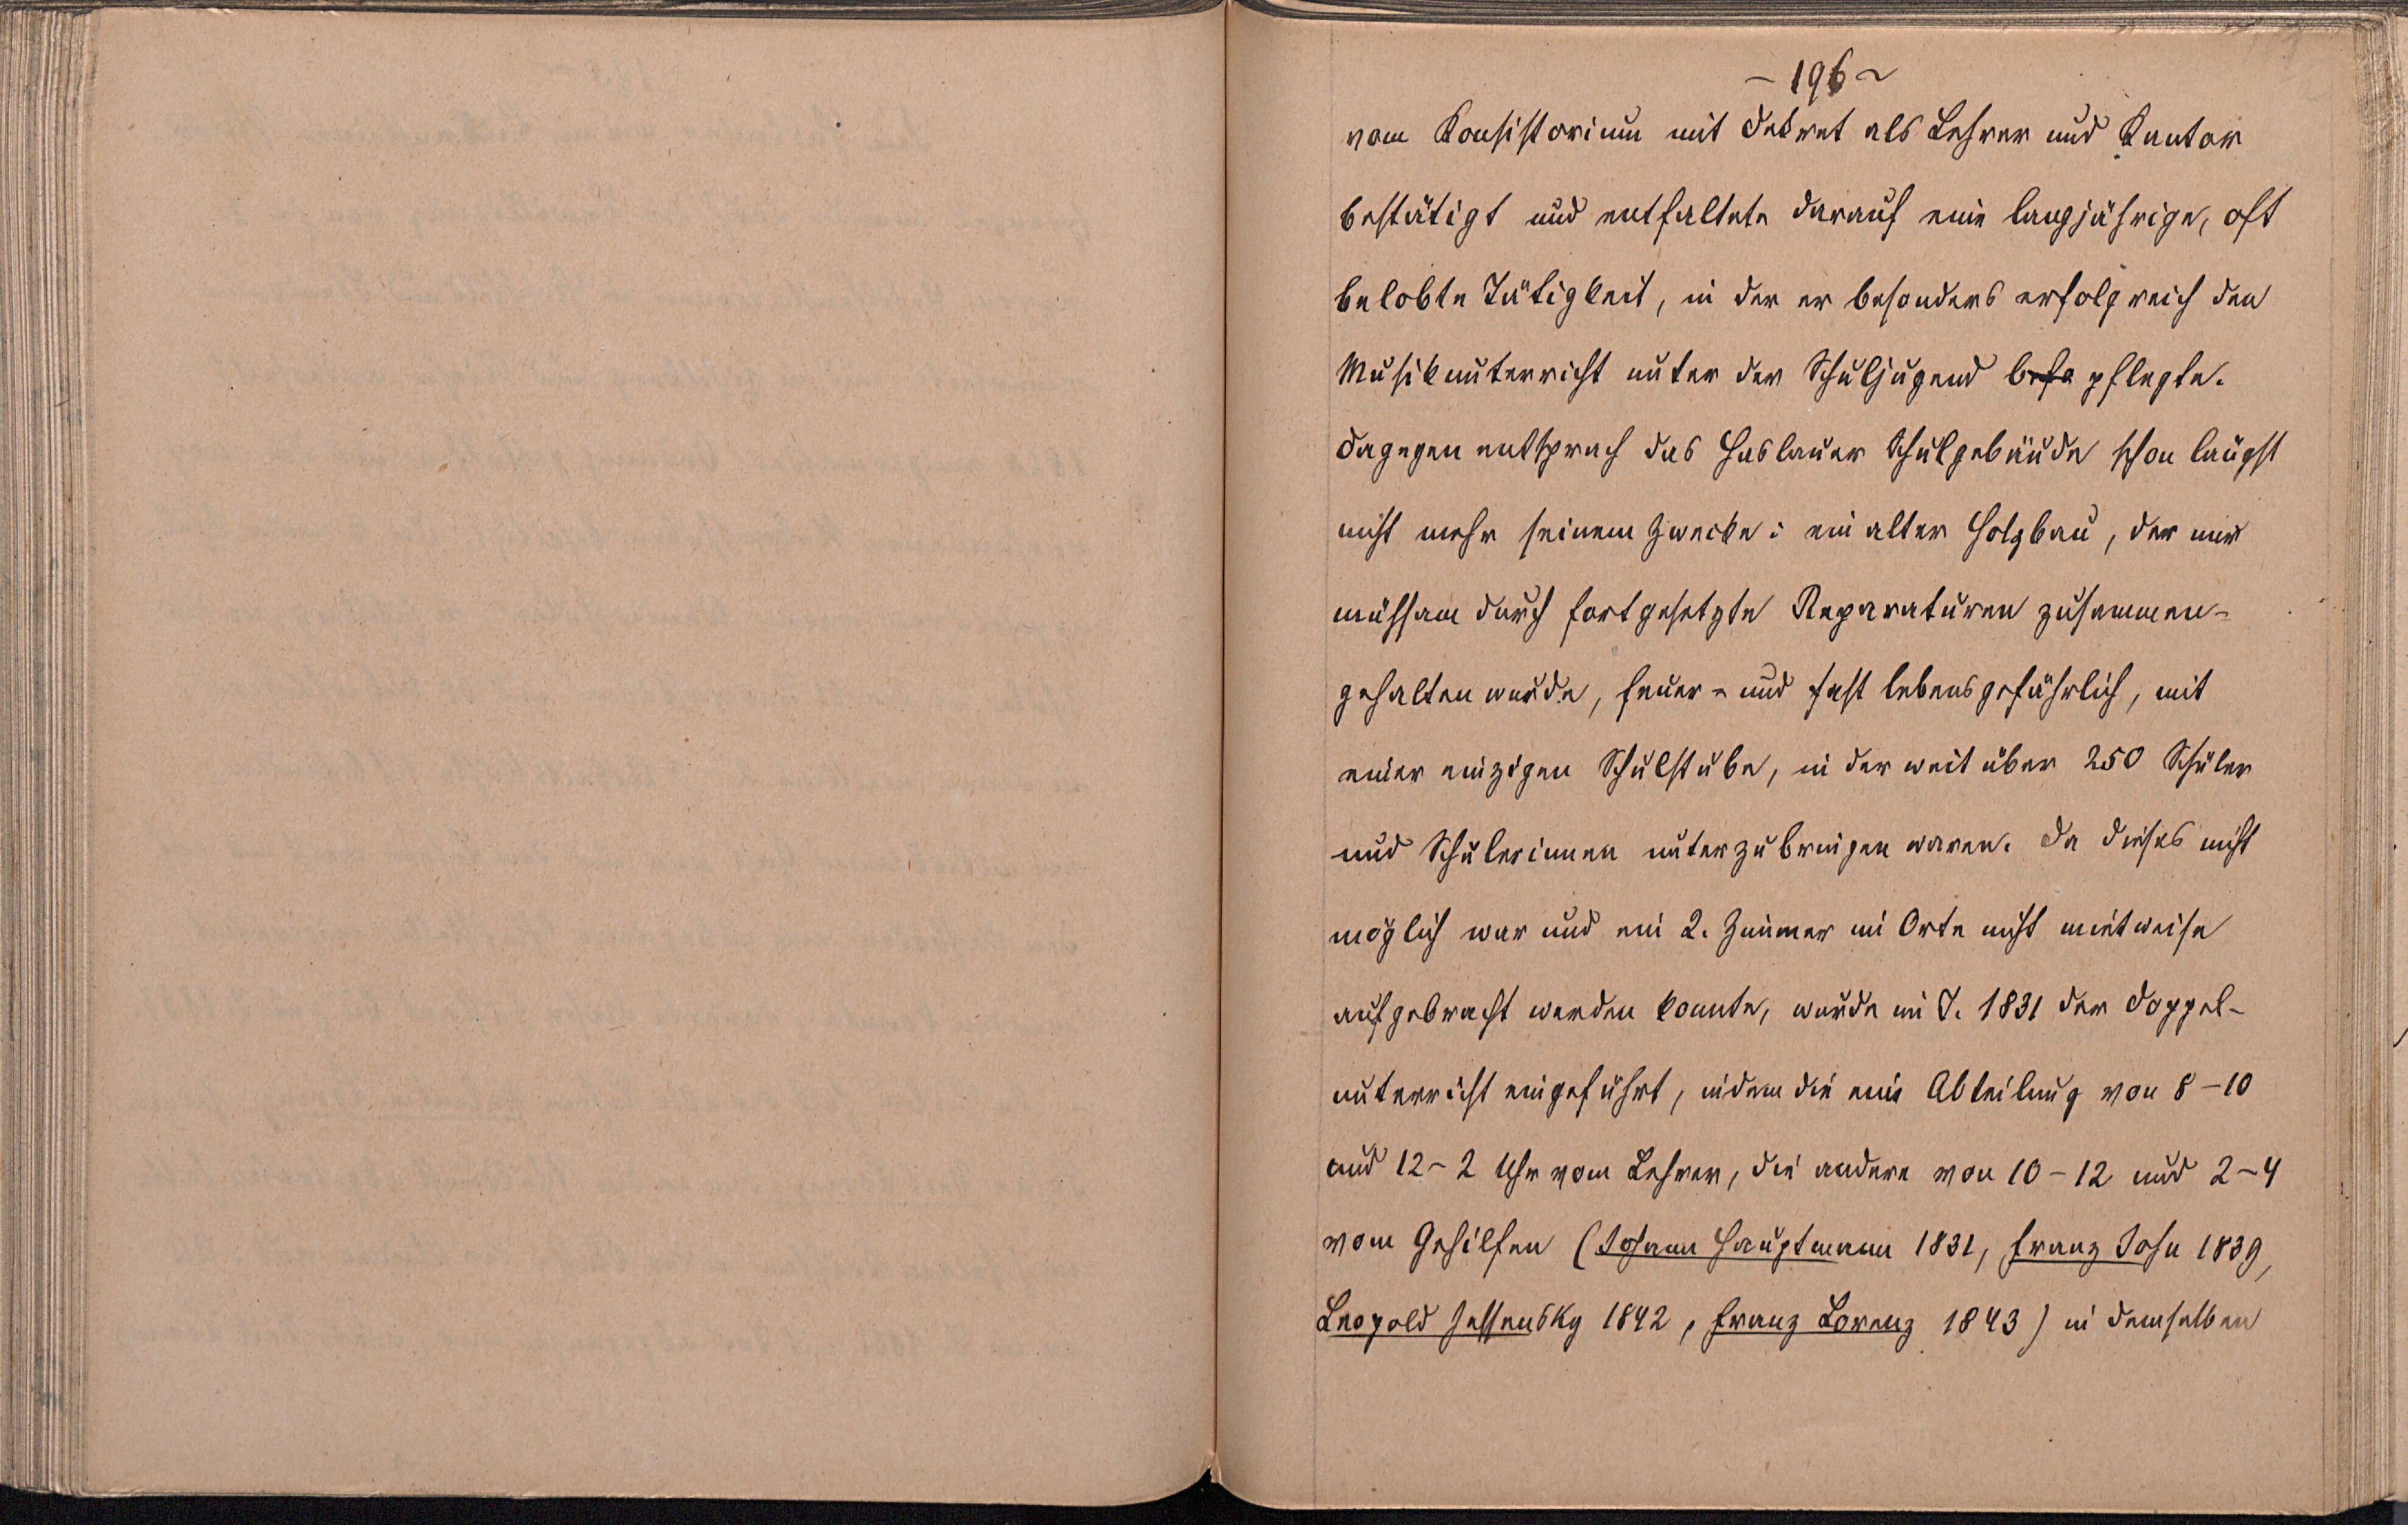 – 196 –
vom Konsistorium mit Dekret als Lehrer und Kantor
bestätigt und entfaltete darauf eine langjährige, oft
belobte Tätigkeit, in der er besonders erfolgreich den
Musikunterricht unter der Schuljugend pflegte.
Dagegen entsprach das Haslauer Schulgebäude schon längst
nicht mehr seinem Zwecke: ein alter Holzbau, der nur
mühsam durch fortgesetzte Reparaturen zusammen-
gehalten wurde, feuer- und fast lebensgefährlich, mit
einer einzigen Schulstube, in der weit über 250 Schüler
und Schülerinnen unterzubringen waren. Da dieses nicht
möglich war und ein 2. Zimmer im Orte nicht mietweise
aufgebracht werden konnte, wurde im J. 1831 der Doppel-
unterricht eingeführt, indem die eine Abteilung von 8–10
und 12–2 Uhr vom Lehrer, die andere von 10–12 und 2–4
vom Gehilfen (Johann Hauptmann 1831, Franz John 1839,
Leopold 1842, Franz Lorenz 1843) in demselben